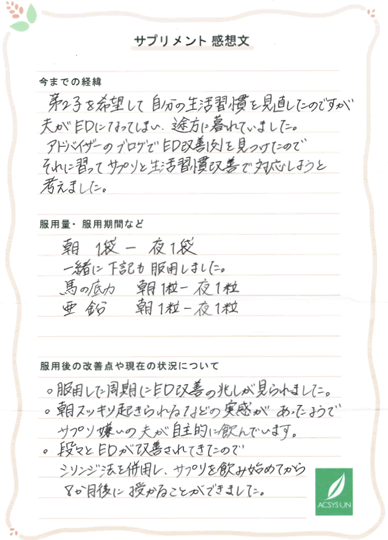 サプリメント 感想文
今までの経緯
第2子を希望して自分の生活習慣を見直したのですが
夫がEDになってしまい、途方に暮れていました。
アドバイザーのブログでED改善例を見つけたので
それに習ってサプリと生活習慣改善で対応しようと
考えました。
服用量・服用期間など
朝 1袋 ー 夜1袋
一緒に下記も服用しました。
馬の底力 朝1粒ー夜1粒
亜鉛 朝1粒ー夜1粒
服用後の改善点や現在の状況について
○服用した周期にED改善の兆しが見られました。
○朝スッキリ起きられるなどの実感があったようで
サプリ嫌いの夫が自主的に飲んでいます。
○段々とEDが改善されてきたので
シリンジ法を併用し、サプリを飲み始めてから
8か月後に授かることができました。
ACSYSUN